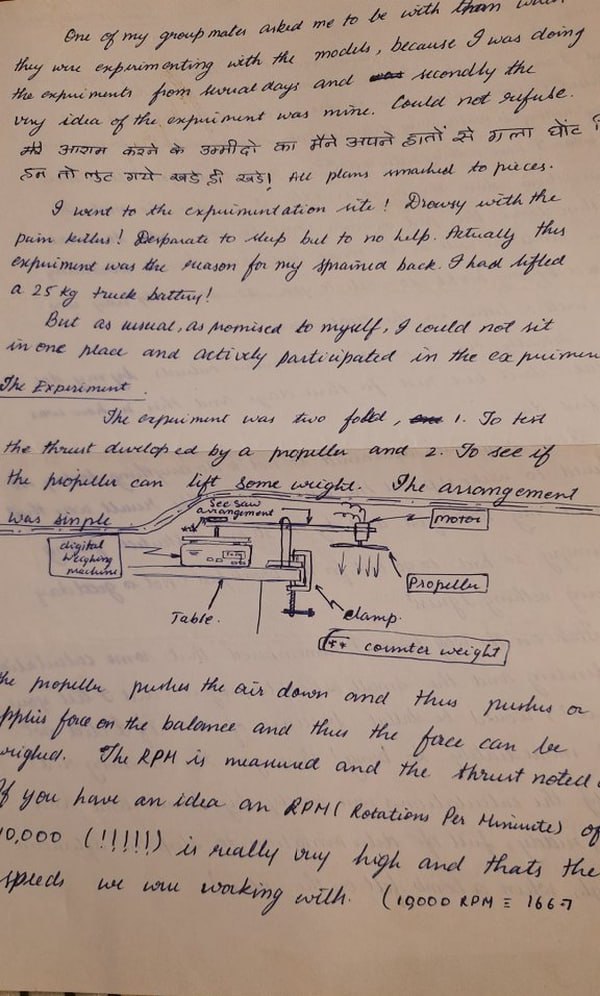 One of my groupmates asked me to be with them when
they were experimenting with the models, because I was doing
the experiments from several days and secondly the
very idea of the experiment was mine. Could not refuse.
मेरे आराम करने के उम्मीदो का मैने अपने हातों से गला घोंट
हम तो लुट गये खडे ही खडे! All plans smashed to pieces.
I went to the experimentation site! Drowsy with the
pain killers! Desparate to sleep but to no help. Actually this
experiment was the reason for my sprained back. I had lifted
a 25 kg truck battery!
But as usual, as promised to myself, I could not sit
in one place and actively participated in the experimen
The Experiment.
The experiment was two fold, 1. To test
the thrust developed by a propeller and 2. To see if
the propeller can lift some weight. The arrangement
was simple
See saw
arrangement
motor
digital
weighing
machine
**
Propeller
Table.
clamp.
** counter weight
he propeller pushes the air down and thus pushes or
applies force on the balance and thus the force can be
weighed. The RPM is measured and the thrust noted
If you have an idea an RPM (Rotations Per Mininute) of
10,000 (!!!!!) is really very high and thats the
speeds we were working with. (10,000 RPM ≡ 166.7